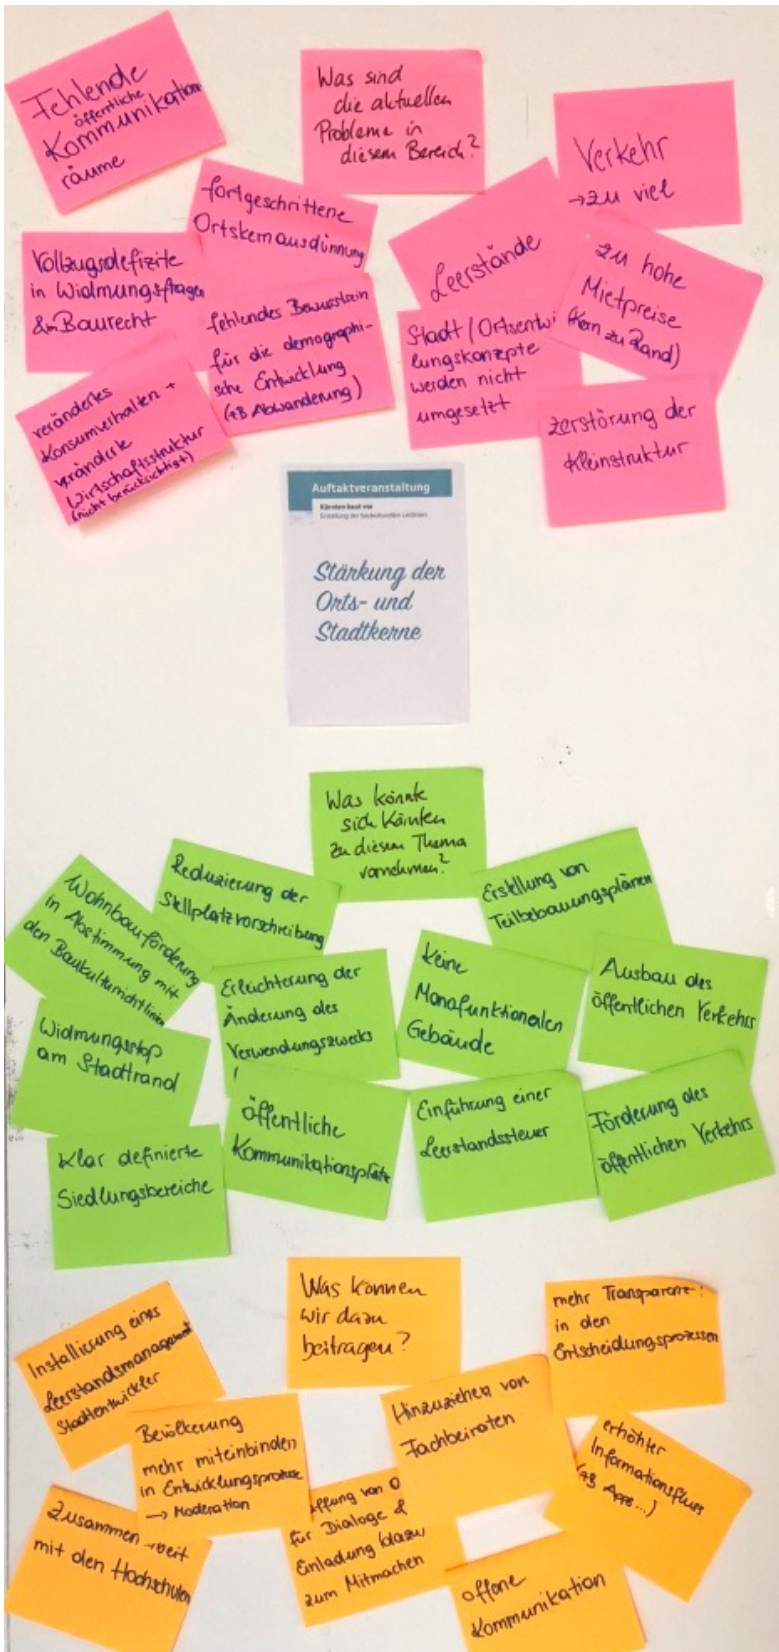 Fehlende
öffentliche
Kommunikations
räume
Was sind
die aktuellen
Probleme in
diesem Bereich?
Verkehr
→ zu viel
fortgeschrittene
Ortskernausdünnung
Vollzugsdefizite
in Widmungsfragen
& im Baurecht
fehlendes Bewusstsein
für die demographi-
sche Entwicklung
(zB Abwanderung)
Leerstände
zu hohe
Mietpreise
(Kern zu Rand)
Stadt/Ortsentwi
lungskonzepte
werden nicht
umgesetzt
verändertes
Konsumverhalten +
veränderte
Wirtschaftsstruktur
(nicht berücksichtigt)
Zerstörung der
Kleinstruktur
Auftaktveranstaltung
Kärnten baut vor
Erstellung der baukulturellen Leitlinien
Stärkung der
Orts- und
Stadtkerne
Was könnte
sich Kärnten
zu diesem Thema
vornehmen?
Reduzierung der
Stellplatzvorschreibung
Erstellung von
Teilbebauungsplänen
Wohnbauförderung
in Abstimmung mit
den Baukulturrichtlinien
Erleichterung der
Änderung des
Verwendungszwecks
!
Keine
Monofunktionalen
Gebäude
Ausbau des
öffentlichen Verkehrs
Widmungsstop
am Stadtrand
öffentliche
Kommunikationsplätze
Einführung einer
Leerstandssteuer
Förderung des
öffentlichen Verkehrs
Klar definierte
Siedlungsbereiche
Was können
wir dazu
beitragen?
mehr Transparenz!
in den
Entscheidungsprozessen
Installierung eines
Leerstandsmanagement
Stadtentwickler
Bevölkerung
mehr miteinbinden
in Entwicklungsprozesse
→ Moderation
Hinzuziehen von
Fachbeiräten
erhöhter
Informationsfluss
(zB Apps...)
Zusammen rbeit
mit den Hochschulen
ffnung von O
für Dialoge &
Einladung dazu
zum Mitmachen
offene
Kommunikation